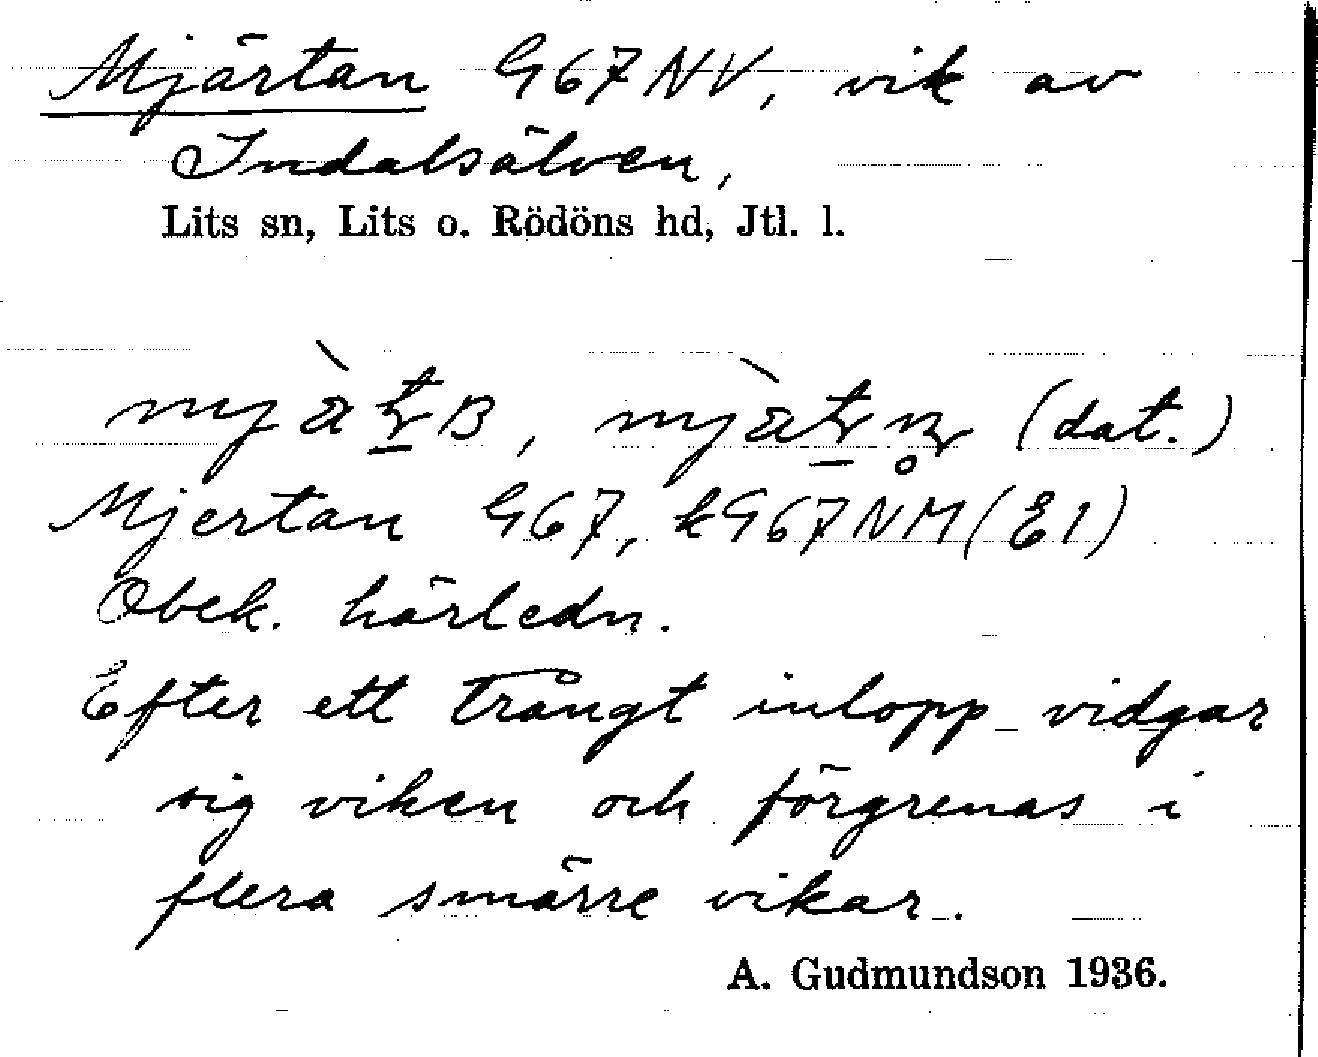 Mjärtan G67NV, vik av
Indalsälven,
Lits sn, Lits o. Rödöns hd, Jtl. l.
(dat.)
Mjertan G67, kG67NM(E1)
Obek. härledn.
Efter ett trångt inlopp vidgar
sig viken och förgrenas i
flera smärre vikar.
A. Gudmundson 1936.